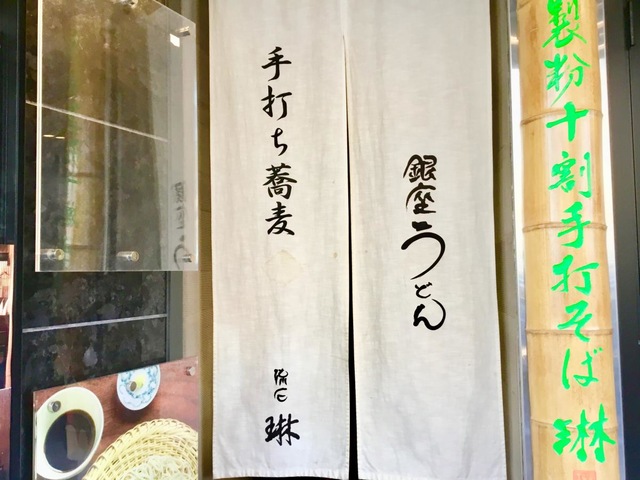 製粉十割手打そば 琳
銀座うどん
手打ち蕎麦
流石 琳